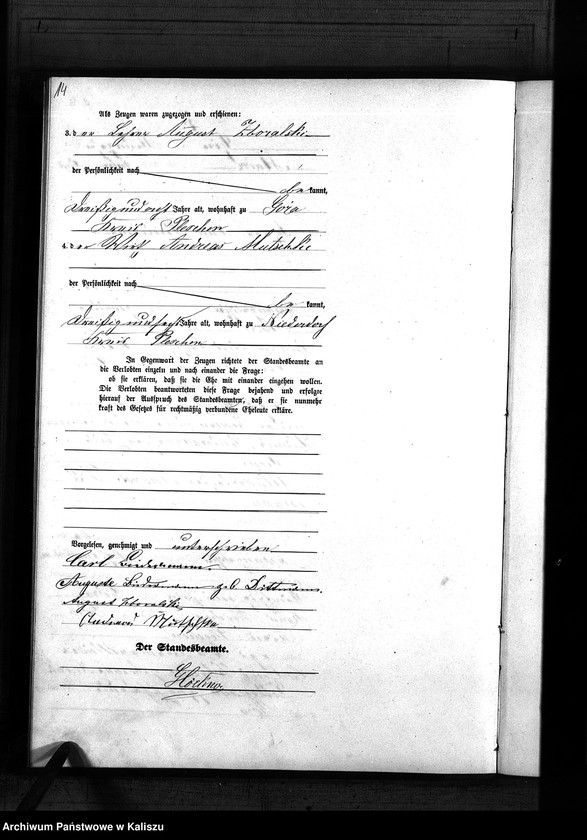 14
Als Zeugen waren zugezogen und erschienen:
3. der Lehrer August Zboralski
der Persönlichkeit nach
bekannt,
Dreißig und acht Jahre alt, wohnhaft zu Góra
Kreis Pleschen
4. der Wirth Andreas Mutschke
der Persönlichkeit nach
bekannt,
Dreißig und sechs Jahre alt, wohnhaft zu Kiederdorf
Kreis Pleschen
In Gegenwart der Zeugen richtete der Standesbeamte an
die Verlobten einzeln und nach einander die Frage:
ob sie erklären, daß sie die Ehe mit einander eingehen wollen.
Die Verlobten beantworteten diese Frage bejahend und erfolgte
hierauf der Ausspruch des Standesbeamten, daß er sie nunmehr
kraft des Gesetzes für rechtmäßig verbundene Eheleute erkläre.
Vorgelesen, genehmigt und unterschrieben
Carl
Auguste geb. Dittmann.
August Zboralski
Andreas Mutschke
Der Standesbeamte.
Archiwum Państwowe w Kaliszu